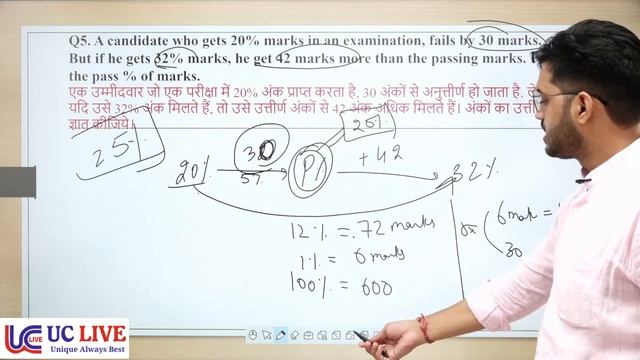 Q5. A candidate who gets 20% marks in an examination, fails by 30 marks.
But if he gets 32% marks, he get 42 marks more than the passing marks.
the pass % of marks.
एक उम्मीदवार जो एक परीक्षा में 20% अंक प्राप्त करता है, 30 अंकों से अनुत्तीर्ण हो जाता है.
यदि उसे 32% अंक मिलते हैं, तो उसे उत्तीर्ण अंकों से 42 अंक अधिक मिलते हैं। अंकों का
ज्ञात कीजिये।
25%
25%
30
20% 5% P% +42 32%
12% = 72 marks
1% = 6 marks
100% = 600
5x 6 mark =
30
UC LIVE
UC LIVE
Unique Always Best